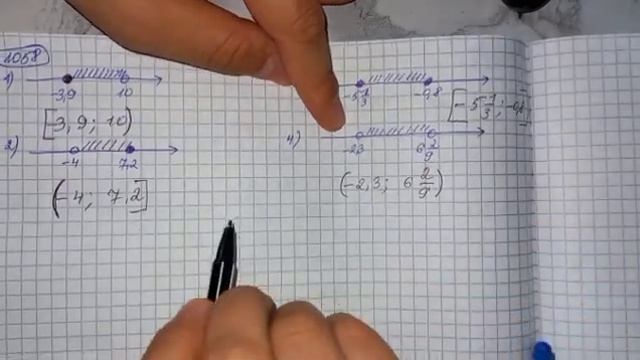 1058
1)
-3,9 10
[3,9; 10)
2)
-4 7,2
(-4; 7,2]
-5 1/3 -0,8
[-5 1/3; -0,8]
4)
-23 6 2/9
(-2,3; 6 2/9)